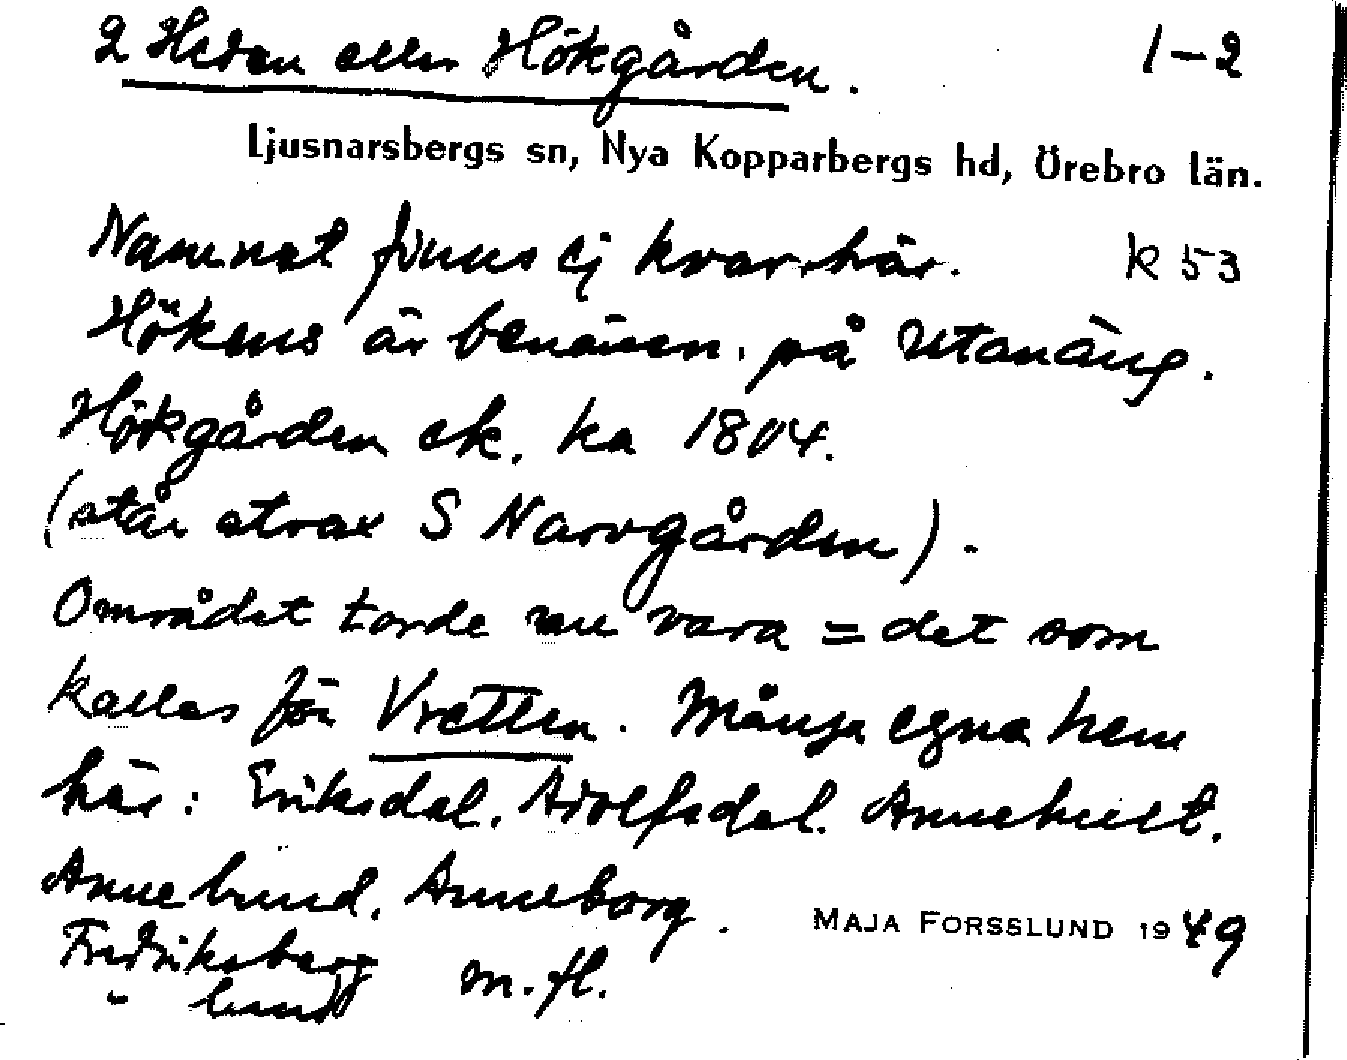 2 Heden eller Hökgården. 1-2
Ljusnarsbergs sn, Nya Kopparbergs hd, Örebro län.
Namnet finns ej kvar här. k 53
Hökens är benämn. på Utanäng.
Hökgården ek. ka 1804.
(står strax S Narvgården).
Området torde nu vara = det som
kallas för Vretten. Många egna hem
här: Eriksdal. Adolfsdal. Annehult.
Annelund. Anneborg.
MAJA FORSSLUND 1949
Fredriksberg m. fl.
" lund